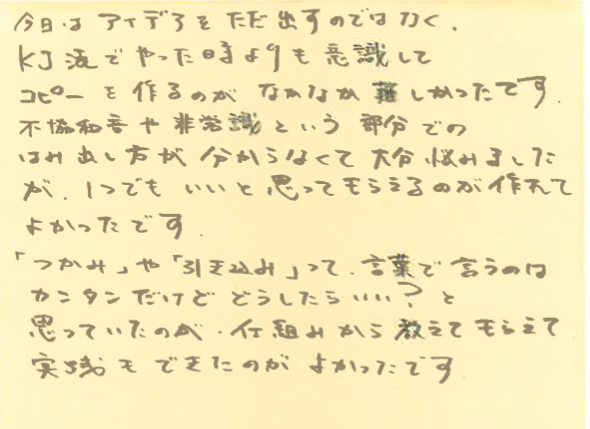 今日は アイデアを ただ 出すのではなく、
KJ法で やった時よりも 意識して
コピーを作るのが なかなか 難しかったです。
不協和音や 非常識 という 部分での
はみ出し方が 分からなくて 大分 悩みました
が、1つでも いいと 思って もらえるのが 作れて
よかったです。
「つかみ」や「引き込み」って、言葉で 言うのは
カンタンだけど どうしたらいい？と
思っていたのが、仕組みから 教えて もらえて
実践も できたのが よかったです。